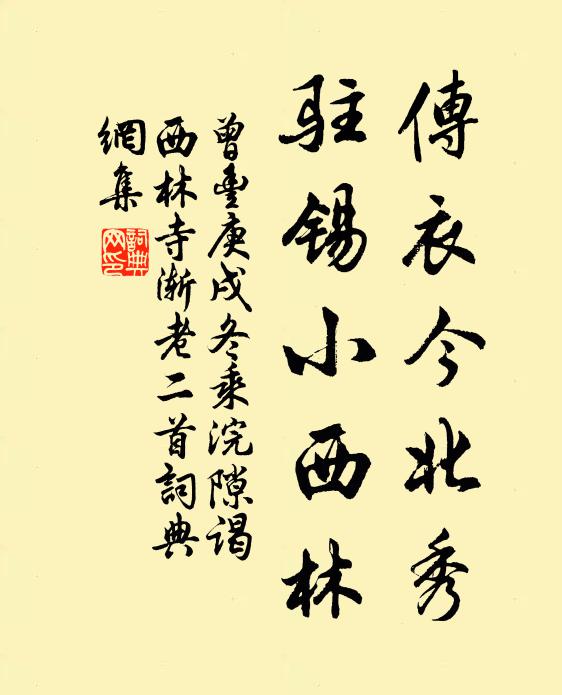 傳衣今北秀
駐錫小西林
曾豐庚戌冬乘浣隙謁
西林寺漸老二首詞典
網集
詞典
网印